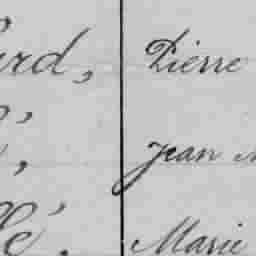 ard, Pierre
é, Jean
lé. Marie